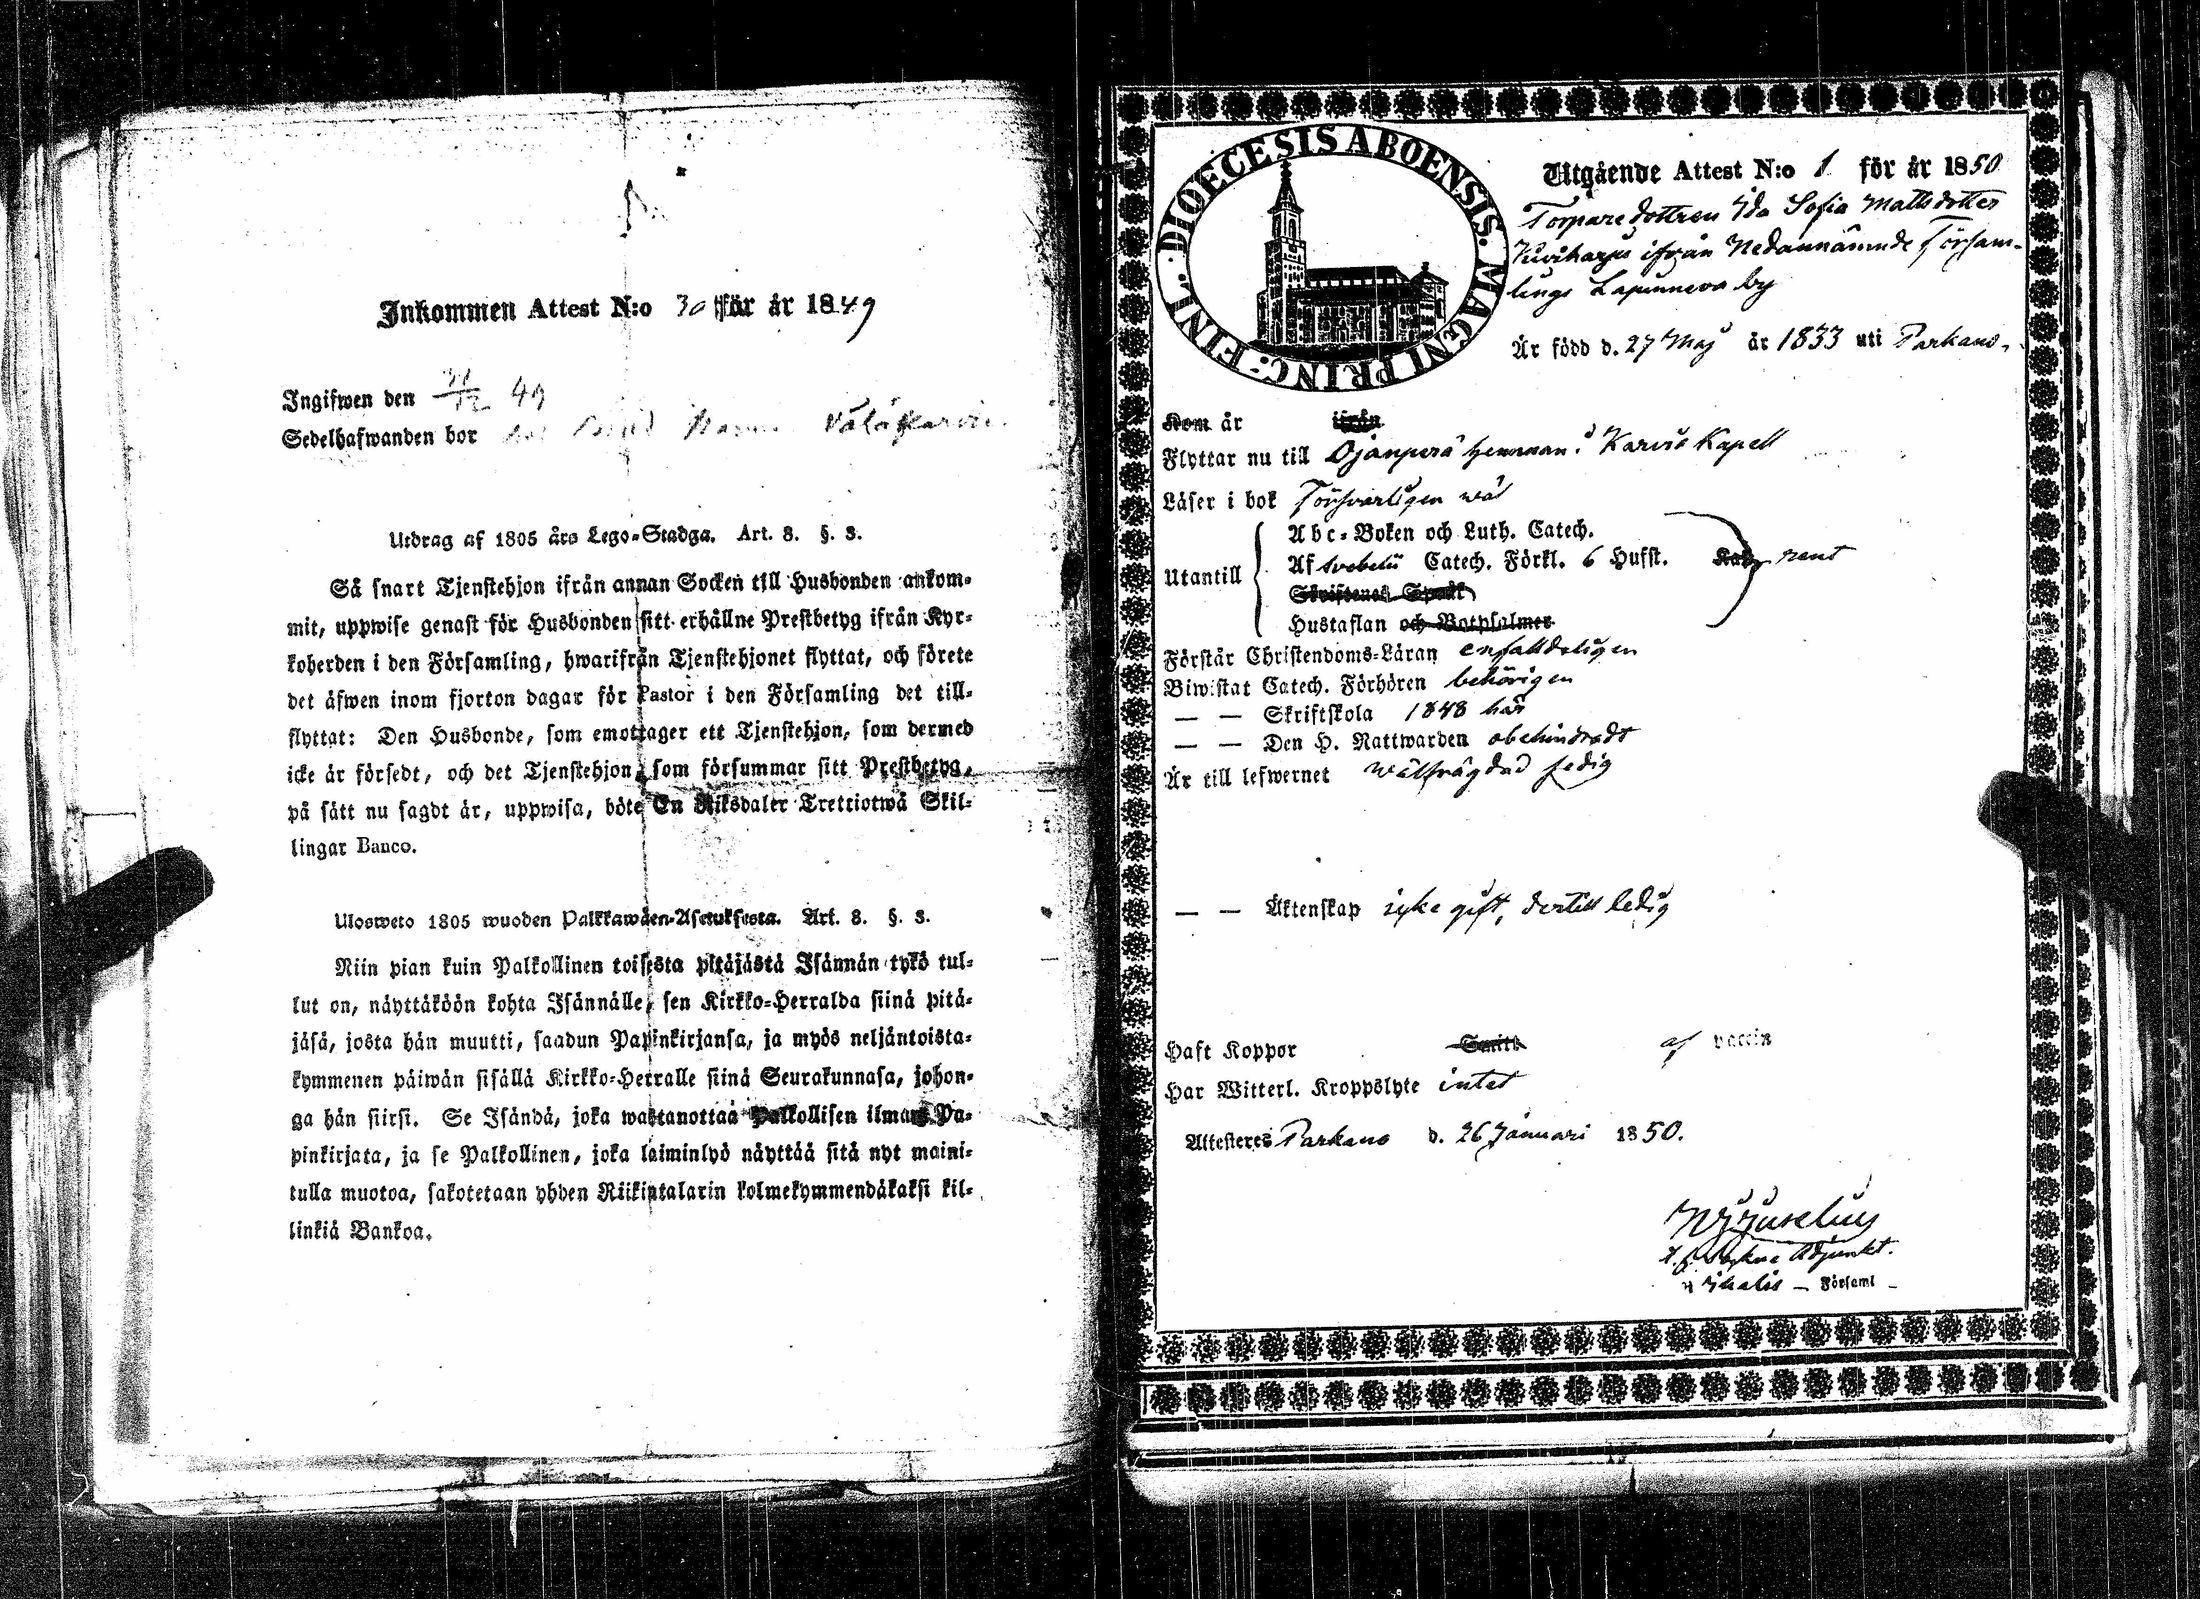 Inkommen Attest N:o 30 för år 1849
Ingifwen den 31/12 49
Sedelhafwanden bor
Utdrag af 1805 års Lego-Stadga. Art. 8. §. 3.
Så snart Tjenstehjon ifrån annan Socken till Husbonden ankom-
mit, uppwise genast för Husbonden sitt erhållne Prestbetyg ifrån Kyr-
koherden i den Församling, hwarifrån Tjenstehjonet flyttat, och förete
det äfwen inom fjorton dagar för Pastor i den Församling det till-
flyttat: Den Husbonde, som emottager ett Tjenstehjon, som dermed
icke är försedt, och det Tjenstehjon, som försummar sitt Prestbetyg,
på sätt nu sagdt är, uppwisa, böte En Riksdaler Trettiotwå Skil-
lingar Banco.
Ulosweto 1805 wuoden Palkkawäen-Asetuksesta. Art. 8. §. 3.
Niin pian kuin Palkollinen toisesta pitäjästä Isännän tykö tul-
lut on, näyttäköön kohta Isännälle, sen Kirkko-Herralda siinä pitä-
jäsä, josta hän muutti, saadun Papinkirjansa, ja myös neljäntoista-
kymmenen päiwän sisällä Kirkko-Herralle siinä Seurakunnasa, johon-
ga hän siirsi. Se Isändä, joka wastanottaa Palkollisen ilman Pa-
pinkirjata, ja se Palkollinen, joka laiminlyö näyttää sitä nyt maini-
tulla muotoa, sakotetaan yhden Riikintalarin kolmekymmendäkaksi kil-
linkiä Bankoa.
DIOECESIS ABOENSIS. MAGNI PRINC: FINL.
Utgående Attest N:o 1 för år 1850
Torparedottren Ida Sofia Mattsdotter
Kiviharju ifrån Nedannämnde Försam-
lings Lapinneva by
Är född d. 27 Maj år 1833 uti Parkano
Kom år ifrån
Flyttar nu till Ojanperä hemman i Karvia Kapell
Läser i bok Försvarligen wäl
Utantill
Abc-Boken och Luth. Catech.
Af Svebelii Catech. Förkl. 6 Hufst. rent
Skriftenes Språk
Hustaflan och Botpsalmer
Förstår Christendoms-Läran enfalldeligen
Biwistat Catech. Förhören behörigen
— — Skriftskola 1848 här
— — Den H. Nattwarden obehindradt
Är till lefwernet wälfrägdad ledig
— — Äktenskap icke gift, dertill ledig
Haft Koppor Smitt af vaccin
Har Witterl. Kroppslyte intet
Attesteres Parkano d. 26 Januari 1850.
Adjunkt.
i Ikalis — Församl —